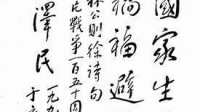 國家生
禍福避
林公則徐詩句
戰爭一百五十
澤民
一九
于